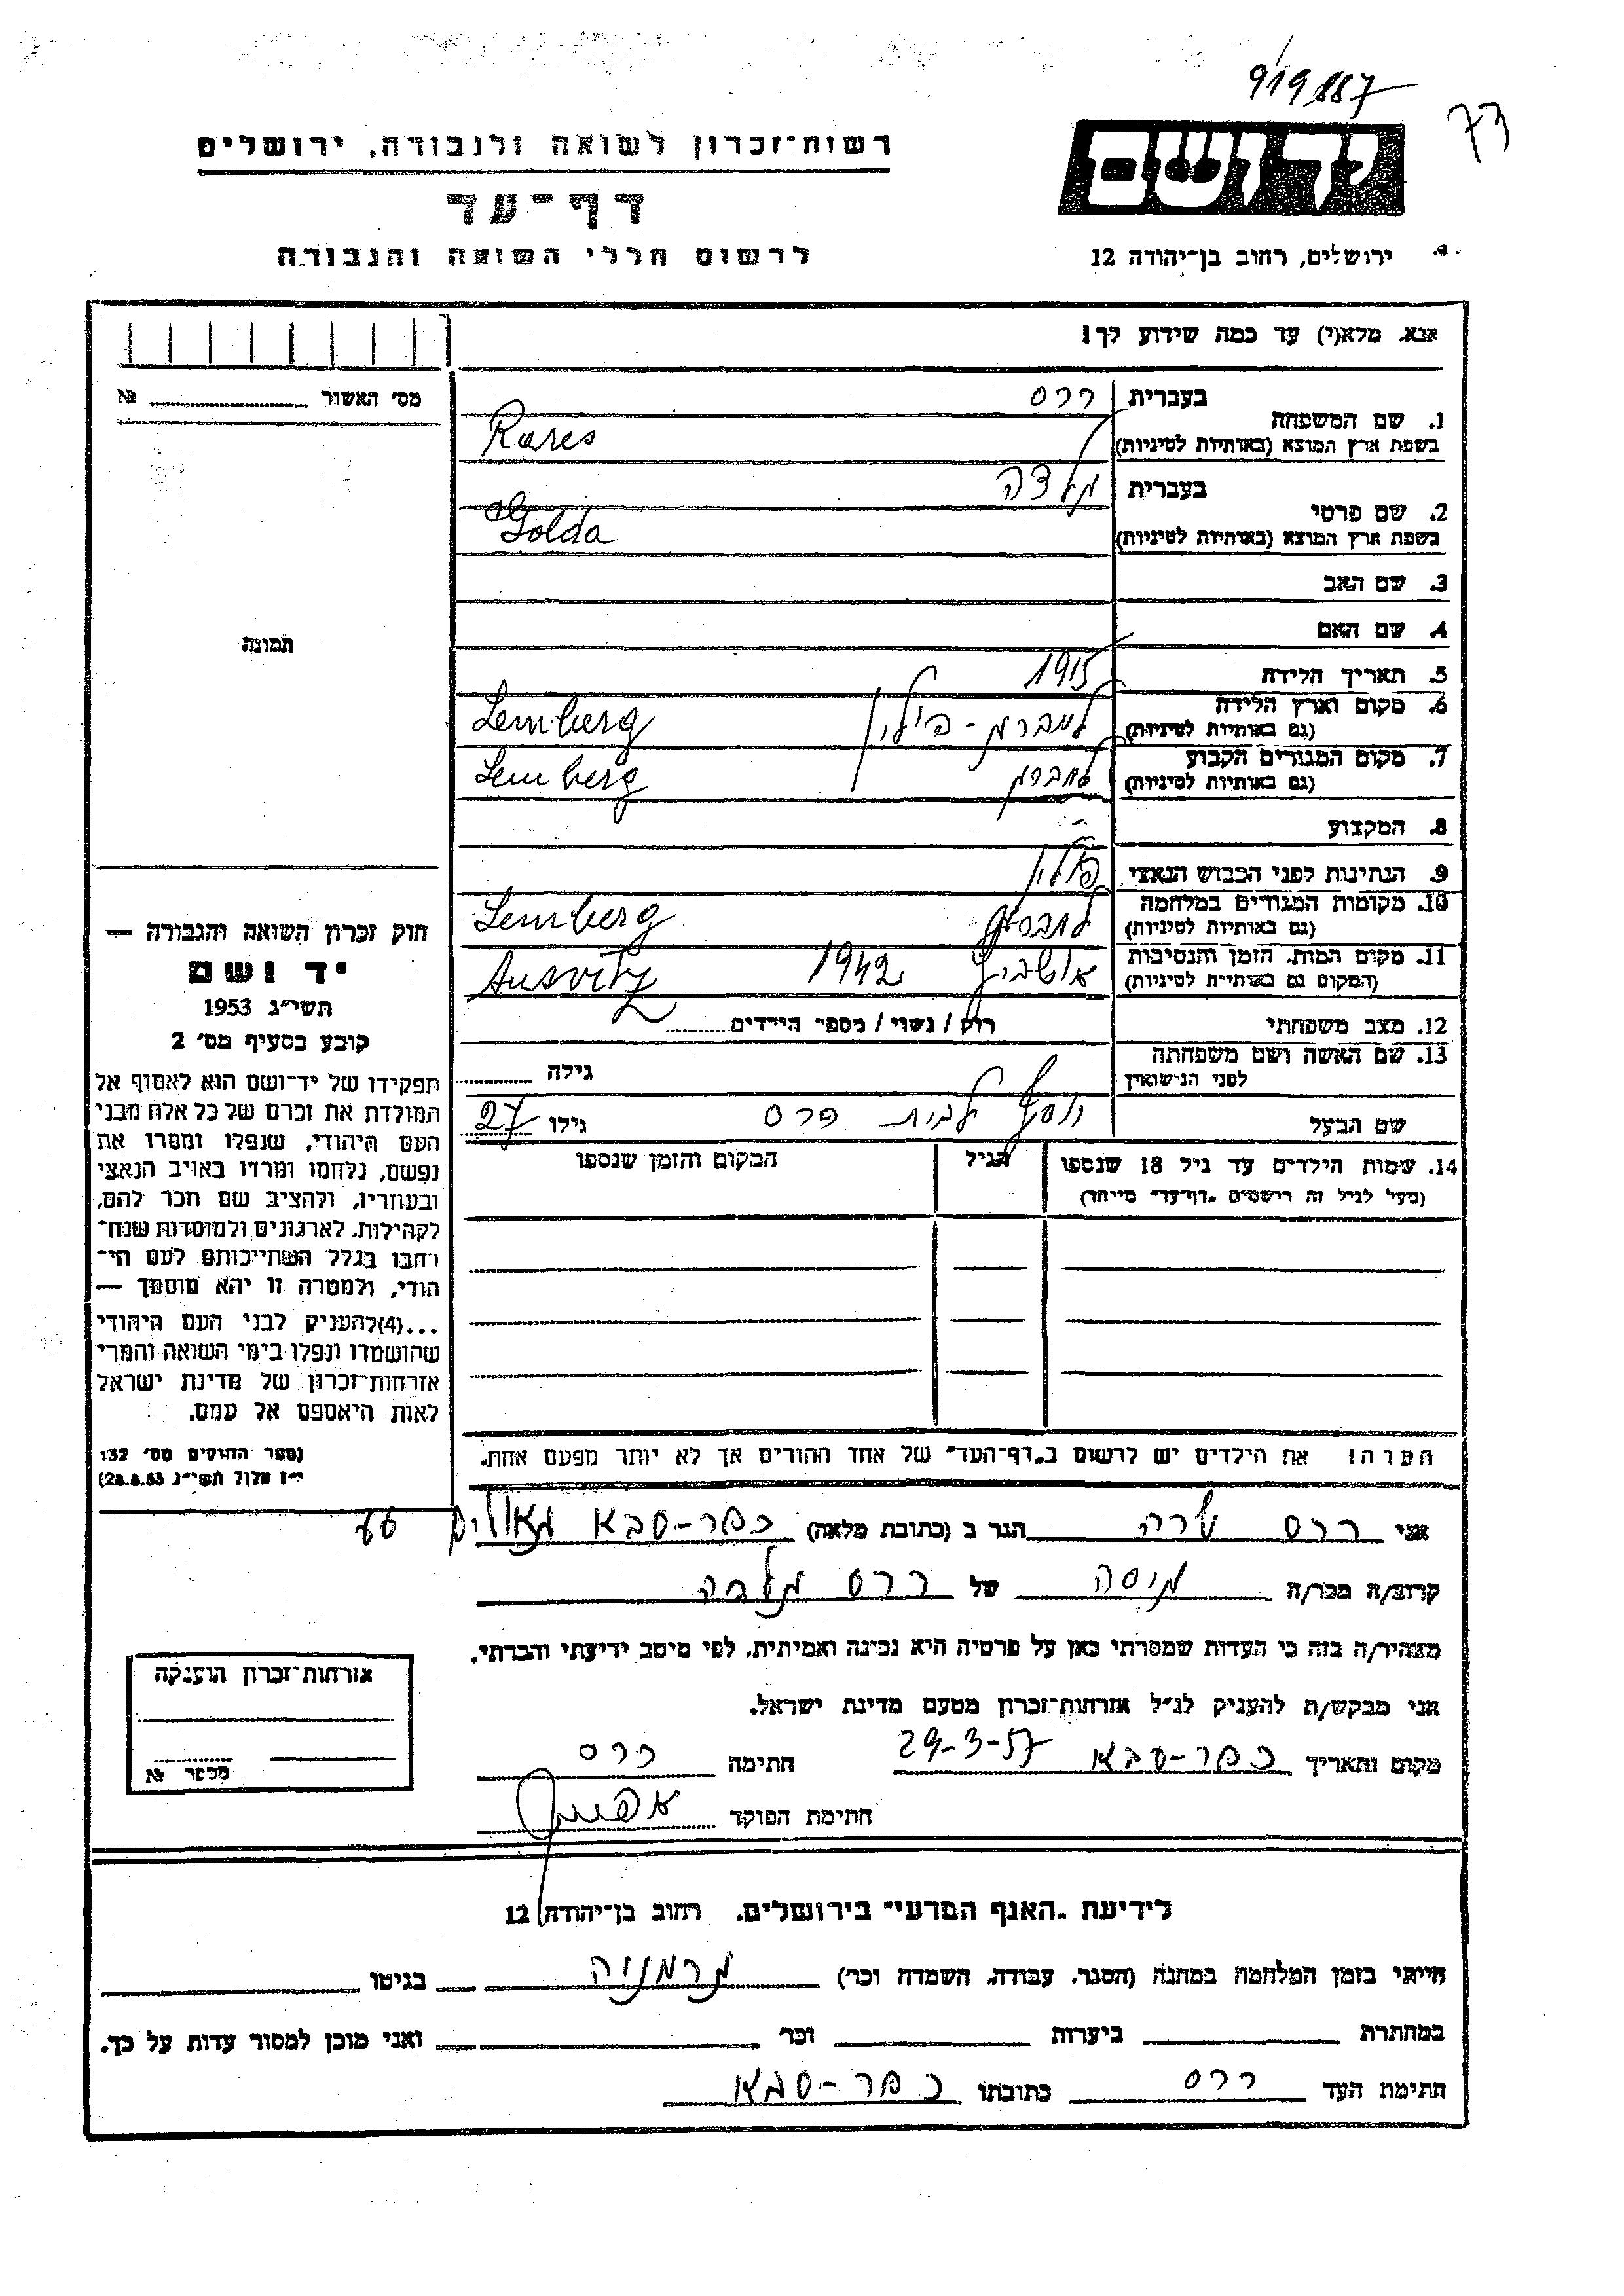 919887
77
רשות־זכרון לשואה ולגבורה, ירושלים
דף־עד
לרשום חללי השואה והגבורה
יד ושם
ירושלים, רחוב בן־יהודה 12
אנא, מלא(י) עד כמה שידוע לך!
מס׳ האשור №
1. שם המשפחה
בעברית ררס
בשפת ארץ המוצא (באותיות לטיניות) Rares
2. שם פרטי
בעברית גולדה
בשפת ארץ המוצא (באותיות לטיניות) Golda
3. שם האב
4. שם האם
תמונה
5. תאריך הלידה 1915
6. מקום וארץ הלידה
(גם באותיות לטיניות) למברג - פולין Lemberg
7. מקום המגורים הקבוע
(גם באותיות לטיניות) למברג Lemberg
8. המקצוע
9. הנתינות לפני הכבוש הנאצי פולין
10. מקומות המגורים במלחמה
(גם באותיות לטיניות) Lemberg
11. מקום המות, הזמן והנסיבות
(המקום גם באותיות לטיניות) 1942 Ausvitz
12. מצב משפחתי רוק / נשוי / מספר הילדים
13. שם האשה ושם משפחתה
לפני הנישואין גילה
שם הבעל יוסף לבית פרס גילו 27
14. שמות הילדים עד גיל 18 שנספו הגיל המקום והזמן שנספו
(מעל לגיל זה רישמים „דף־עד״ מיוחד)
חוק זכרון השואה והגבורה —
יד ושם
תשי״ג 1953
קובע בסעיף מס׳ 2
תפקידו של יד־ושם הוא לאסוף אל
המולדת את זכרם של כל אלה מבני
העם היהודי, שנפלו ומסרו את
נפשם, נלחמו ומרדו באויב הנאצי
ובעוזריו, ולהציב שם וזכר להם,
לקהילות, לארגונים ולמוסדות שנח־
רבו בגלל השתייכותם לעם הי־
הודי, ולמטרה זו יהא מוסמך —
...(4)להעניק לבני העם היהודי
שהושמדו ונפלו בימי השואה והמרי
אזרחות־זכרון של מדינת ישראל
לאות היאספם אל עמם.
(ספר החוקים מס׳ 132
י״ז אלול תשי״ג 28.8.53)
הערה! את הילדים יש לרשום ב„דף־העד״ של אחד ההורים אך לא יותר מפעם אחת.
אני ררס שרה הגר ב (כתובת מלאה) כפר-סבא גאולים 66
קרוב/ה מכר/ה גיסה של ררס גולדה
מצהיר/ה בזה כי העדות שמסרתי כאן על פרטיה היא נכונה ואמיתית, לפי מיטב ידיעתי והכרתי.
אני מבקש/ת להעניק לנ״ל אזרחות־זכרון מטעם מדינת ישראל.
מקום ותאריך כפר-סבא 29-3-57 חתימה ררס
חתימת הפוקד
אזרחות־זכרון הוענקה
מספר №
לידיעת „האגף המדעי״ בירושלים, רחוב בן־יהודה 12
הייתי בזמן המלחמה במחנה (הסגר, עבודה, השמדה וכו׳) גרמניה בגיטו
במחתרת ביערות וכו׳ ואני מוכן למסור עדות על כך.
חתימת העד ררס כתובתו כפר-סבא